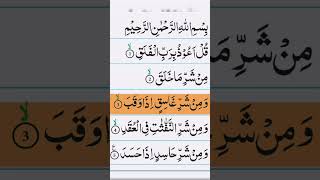 بِسْمِ اللّٰهِ الرَّحْمٰنِ الرَّحِيْمِ
قُلْ اَعُوْذُ بِرَبِّ الْفَلَقِ ۝۱
مِنْ شَرِّ مَا خَلَقَ ۝۲
وَ مِنْ شَرِّ غَاسِقٍ اِذَا وَقَبَ ۝۳
وَ مِنْ شَرِّ النَّفّٰثٰتِ فِی الْعُقَدِ ۝۴
وَ مِنْ شَرِّ حَاسِدٍ اِذَا حَسَدَ ۝۵